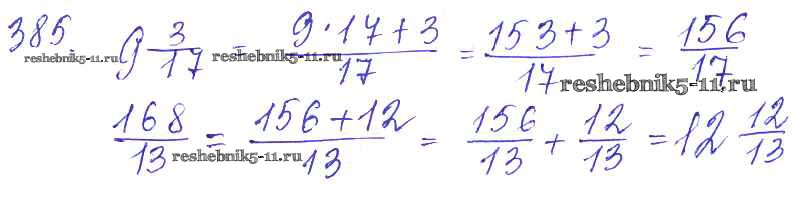 385 9 3/17 = (9·17+3)/17 = (153+3)/17 = 156/17
reshebnik5-11.ru reshebnik5-11.ru reshebnik5-11.ru
168/13 = (156+12)/13 = 156/13 + 12/13 = 12 12/13
reshebnik5-11.ru